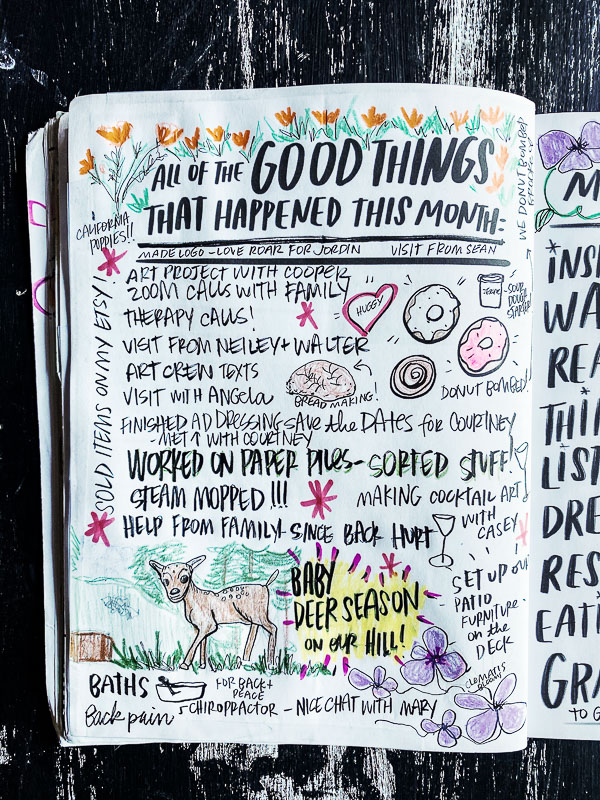 ALL OF THE GOOD THINGS
THAT HAPPENED THIS MONTH:
CALIFORNIA
POPPIES!!
WE DONUT BOMBED
MADE LOGO - LOVE ROAR FOR JORDIN VISIT FROM SEAN
ART PROJECT WITH COOPER
ZOOM CALLS WITH FAMILY
THERAPY CALLS!
HUGGY
SOUR
DOUGH
STARTER!
VISIT FROM NEILEY + WALTER
ART CREW TEXTS
VISIT WITH ANGELA
BREAD MAKING!
DONUT BOMBED!
SOLD ITEMS ON MY ETSY!
FINISHED ADDRESSING SAVE the DATES for COURTNEY
- MET ↑ WITH COURTNEY
WORKED ON PAPER PILES - SORTED STUFF!
STEAM MOPPED!!!
MAKING COCKTAIL ART
WITH
CASEY
HELP FROM FAMILY - SINCE BACK HURT
BABY
DEER SEASON
ON OUR HILL!
- SET UP OUR
PATIO
FURNITURE
on the
DECK
BATHS
FOR BACK +
PEACE
CLEMATIS
BLOOM
Back pain
- CHIROPRACTOR - NICE CHAT WITH MARY
M
INSP
WA
REA
THI
LIST
DRE
RES
EATI
GRA
TO G